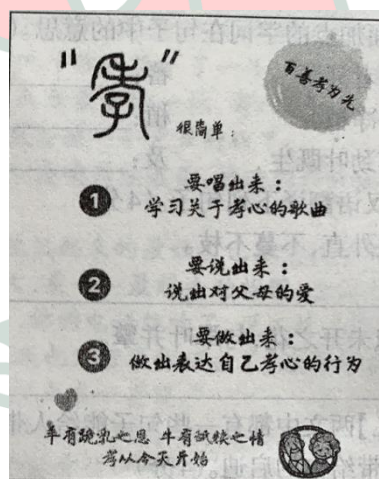 "孝"
很简单：
百善孝为先
1 要唱出来：
学习关于孝心的歌曲
2 要说出来：
说出对父母的爱
3 要做出来：
做出表达自己孝心的行为
羊有跪乳之恩 牛有舐犊之情
孝从今天开始